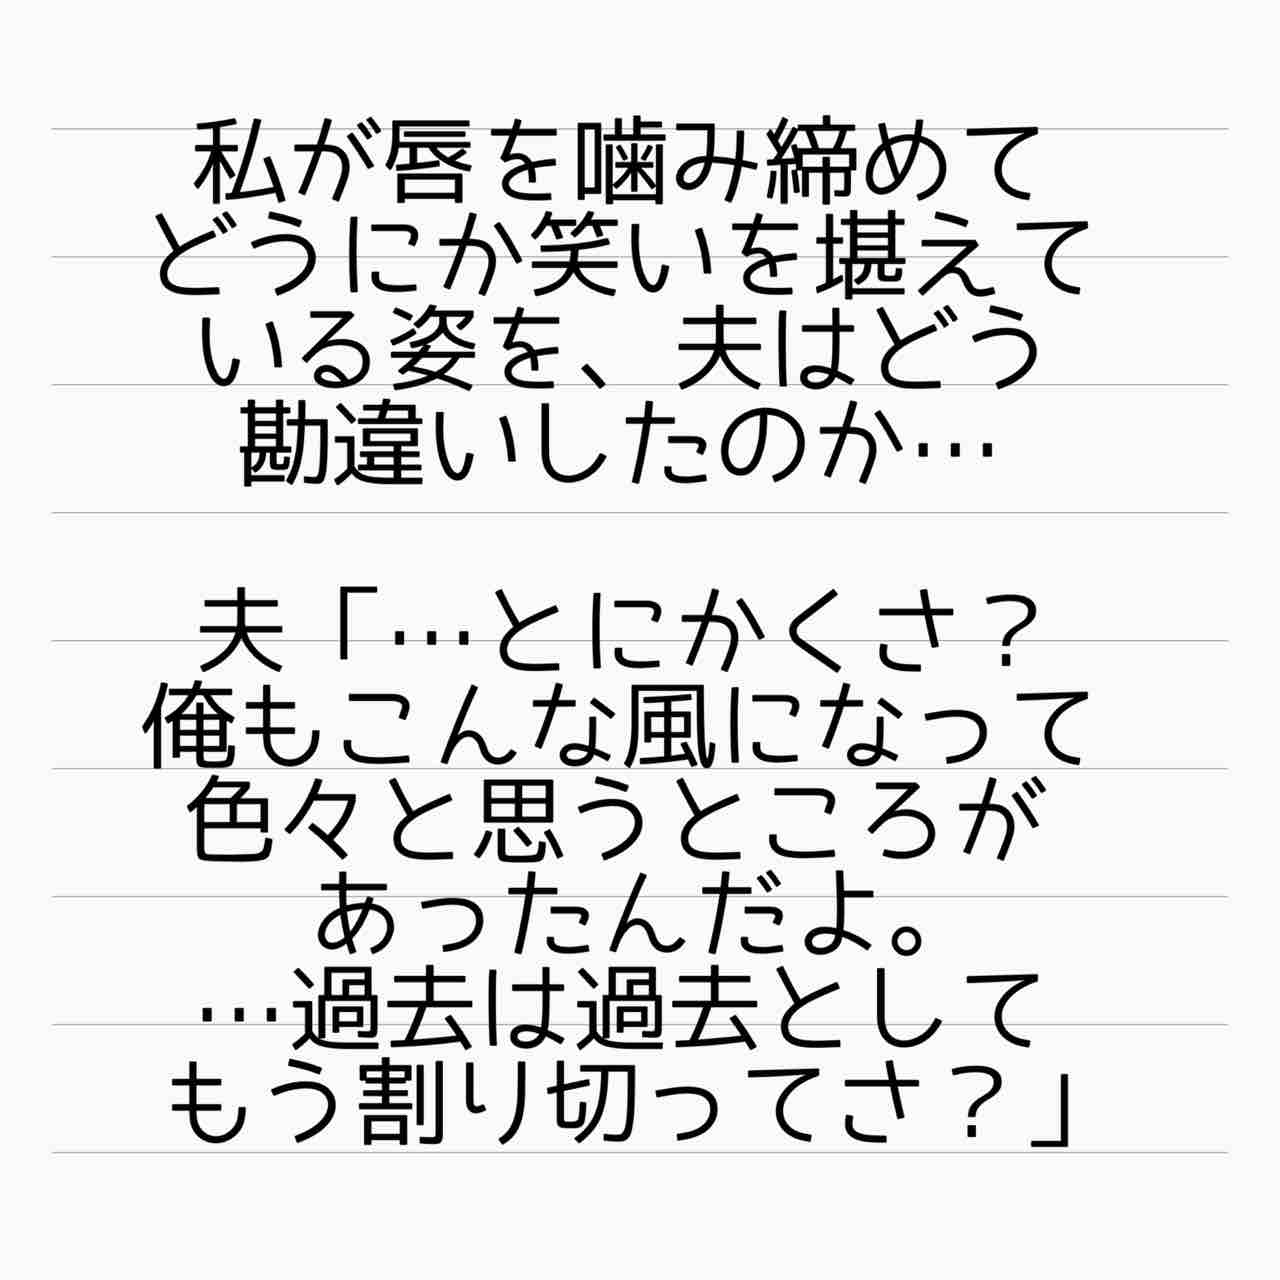 私が唇を噛み締めて
どうにか笑いを堪えて
いる姿を、夫はどう
勘違いしたのか…
夫「…とにかくさ？
俺もこんな風になって
色々と思うところが
あったんだよ。
…過去は過去として
もう割り切ってさ？」